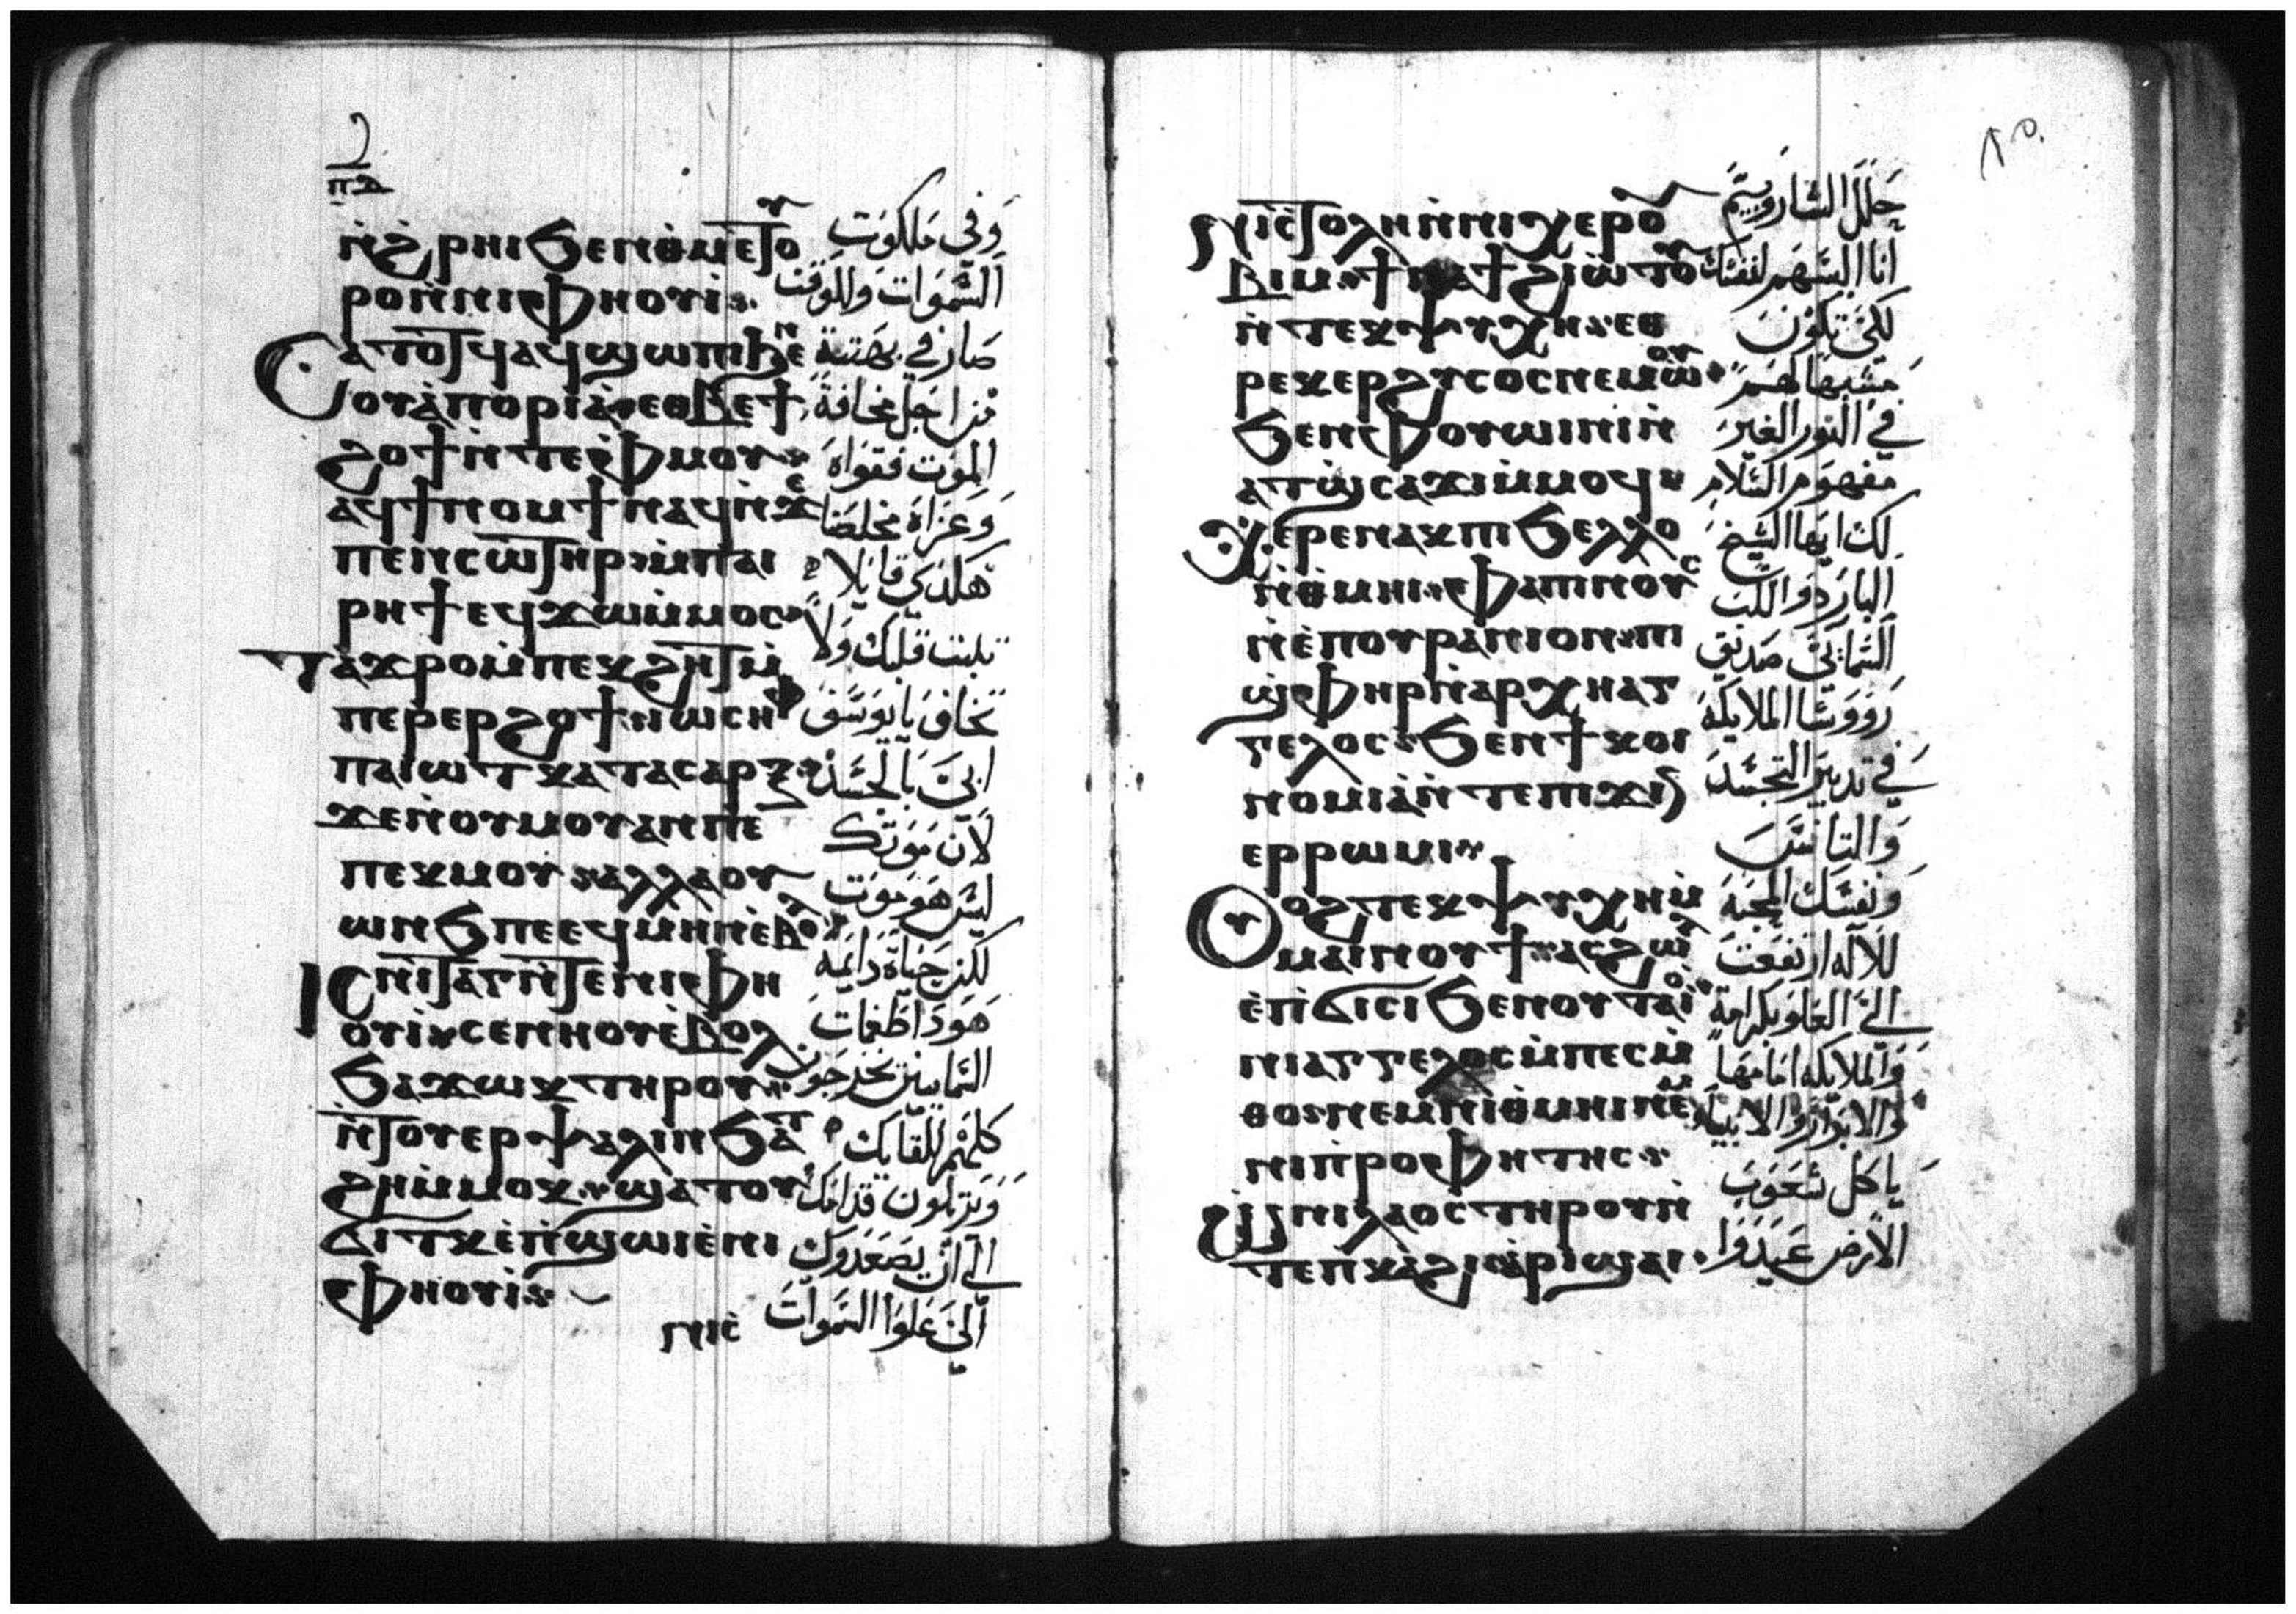 ⲛ̀ϧⲣⲏⲓ ϧⲉⲛ ⲑⲙⲉⲧⲟⲩ
ⲣⲟ ⲛ̀ⲛⲓⲫⲏⲟⲩⲓ̀
ⲥⲁⲧⲟⲧϥ ⲁϥϣⲱⲡⲓ ϧⲉⲛ
ⲟⲩⲁ̀ⲡⲟⲣⲓⲁ̀ ⲉⲑⲃⲉ ϯ
ϩⲟϯ ⲛ̀ⲧⲉ ⲫⲙⲟⲩ
ⲁϥϯⲛⲟⲙϯ ⲛⲁϥ ⲛ̀ϫⲉ
ⲡⲉⲛⲥⲱⲧⲏⲣ ⲙ̀ⲡⲁⲓ
ⲣⲏϯ ⲉϥϫⲱ ⲙ̀ⲙⲟⲥ
ⲧⲁϫⲣⲟ ⲙ̀ⲡⲉⲕϩⲏⲧ ⲙ̀
ⲡⲉⲣⲉⲣϩⲟϯ ⲓⲱⲥⲏⲫ
ⲡⲁⲓⲱⲧ ⲕⲁⲧⲁ ⲥⲁⲣⲝ
ϫⲉ ⲛ̀ⲟⲩⲙⲟⲩ ⲁⲛ ⲡⲉ
ⲡⲉⲕⲙⲟⲩ ⲁⲗⲗⲁ ⲟⲩ
ⲱⲛϧ ⲡⲉ ⲉϥⲙⲏⲛ ⲉ̀ⲃⲟⲗ
ⲓⲥ ⲛⲓⲧⲁⲅⲙⲁ ⲛ̀ⲧⲉ ⲛⲓⲫⲏ
ⲟⲩⲓ̀ ⲥⲉⲛⲏⲟⲩ ⲉ̀ⲃⲟⲗ
ϧⲁϫⲱⲕ ⲧⲏⲣⲟⲩ
ⲛ̀ⲧⲟⲩⲉⲣⲯⲁⲗⲓⲛ ϧⲁⲧ
ϩⲏ ⲙ̀ⲙⲟⲕ ϣⲁⲧⲟⲩ
ϭⲓⲧⲕ ⲉ̀ⲡ̀ϣⲱⲓ ⲉ̀ⲛⲓ
ⲫⲏⲟⲩⲓ̀
وفي ملكوت
السموات وللوقت
صار في بهتة
من اجل مخافة
الموت فقواه
وعزاه مخلصنا
هكذي قايلا
ثبت قلبك ولا
تخاف يا يوسف
ابي بالجسد
لان موتك
ليس هو موت
لكن حياة دايمة
هوذا طغمات
السماييين يخرجون
كلهم للقايك
ويرتلون قدامك
الى ان يصعدوك
الى علو السموات
ϯⲥⲧⲟⲗⲏ ⲛ̀ⲛⲓⲭⲉⲣⲟⲩ
ⲃⲓⲙ
ⲛ̀ⲧⲉⲕⲯⲩⲭⲏ ⲉⲑ
ⲣⲉⲕⲉⲣϩⲩⲥⲟⲥ ⲛⲉⲙⲱⲟⲩ
ϧⲉⲛ ⲫⲟⲩⲱⲓⲛⲓ ⲛ̀
ⲁⲧϣⲥⲁϫⲓ ⲙ̀ⲙⲟϥ
ⲭⲉⲣⲉ ⲛⲁⲕ ⲡⲓϧⲉⲗⲗⲟ
ⲛ̀ⲑⲙⲏⲓ ⲫⲁ ⲡⲓⲛⲟⲩⲥ
ⲛ̀ⲉ̀ⲡⲟⲩⲣⲁⲛⲓⲟⲛ ⲡⲓ
ϣⲫⲏⲣ ⲛ̀ⲁⲣⲭⲏⲁⲅ
ⲅⲉⲗⲟⲥ ϧⲉⲛ ϯⲕⲟⲓ
ⲛⲟⲙⲓⲁ̀ ⲛ̀ⲧⲉ ⲡⲓϫⲓⲛ
ⲉⲣⲣⲱⲙⲓ
ⲟⲩⲟϩ ⲧⲉⲕⲯⲩⲭⲏ ⲙ̀
ⲙⲁⲓⲛⲟⲩϯ ⲁⲥϩⲱⲗ
ⲉ̀ⲡϭⲓⲥⲓ ϧⲉⲛ ⲟⲩⲧⲁⲓⲟ
ⲛⲓⲁⲅⲅⲉⲗⲟⲥ ⲙ̀ⲡⲉⲥⲙ̀
ⲑⲟ ⲛⲉⲙ ⲛⲓⲑⲙⲏⲓ ⲛⲉⲙ
ⲛⲓⲡⲣⲟⲫⲏⲧⲏⲥ
ⲛⲓⲗⲁⲟⲥ ⲧⲏⲣⲟⲩ ⲛ̀
ⲧⲉ ⲡⲕⲁϩⲓ ⲁ̀ⲣⲓϣⲁⲓ
حلل الشاروبيم
انا البسهم لنفسك
لكي تكون
مشبها لهم
في النور الغير
مفهوم السلام
لك ايها الشيخ
البار ذو اللب
السمائي صديق
رووسا الملايكة
في تدبير التجسد
والتانس
ونفسك المحبة
للاله ارتفعت
الى العلو بكرامة
والملايكة امامها
والابرار والانبيا
يا كل شعوب
الارض عيدوا